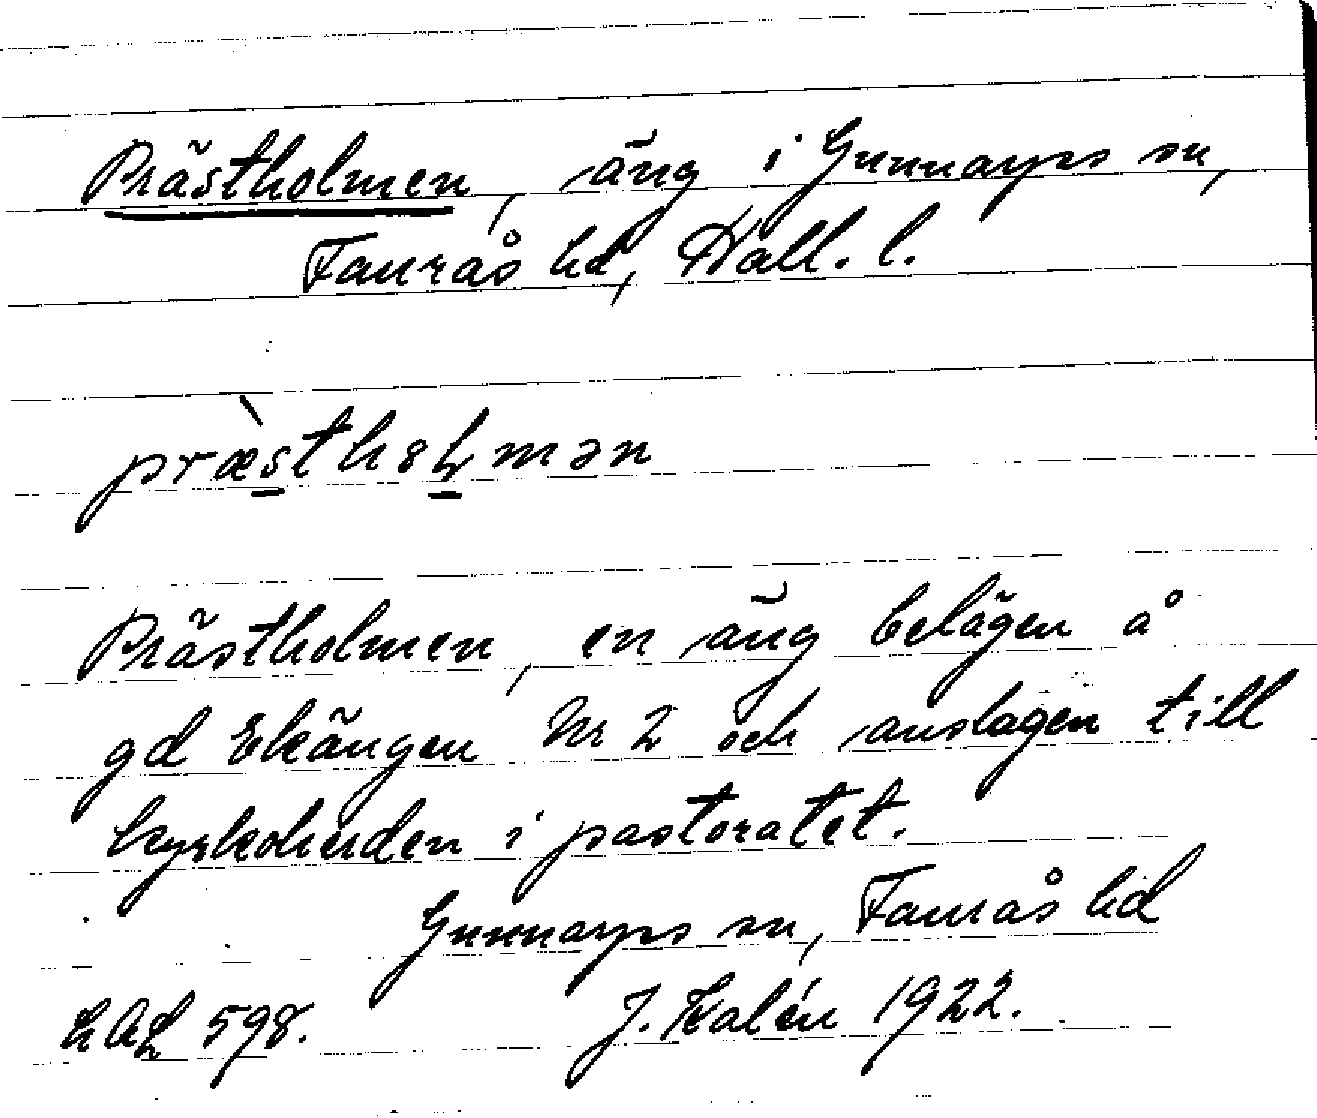 Prästholmen, äng i Gunnarps sn,
Faurås hd, Hall. l.
præ̀sthoɫmən
Prästholmen, en äng belägen å
gd Ekängen Nr 2 och anslagen till
kyrkoherden i pastoratet.
Gunnarps sn, Faurås hd
598. J. Kalén 1922.